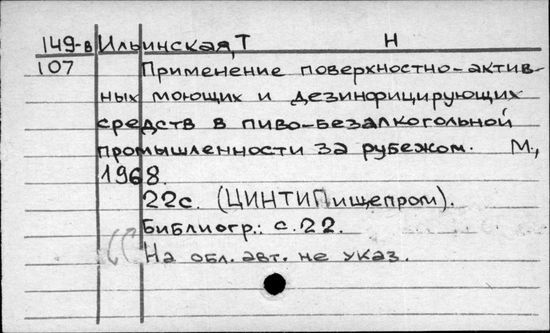 149-в Ильинская, Т Н
107 Применение поверхностно-актив-
ных моющих и дезинфицирующих
средств в пиво-безалкогольной
промышленности за рубежом. М.,
1968.
22с. (ЦИНТИПищепром).
Библиогр.: с.22.
На обл. авт. не указ.